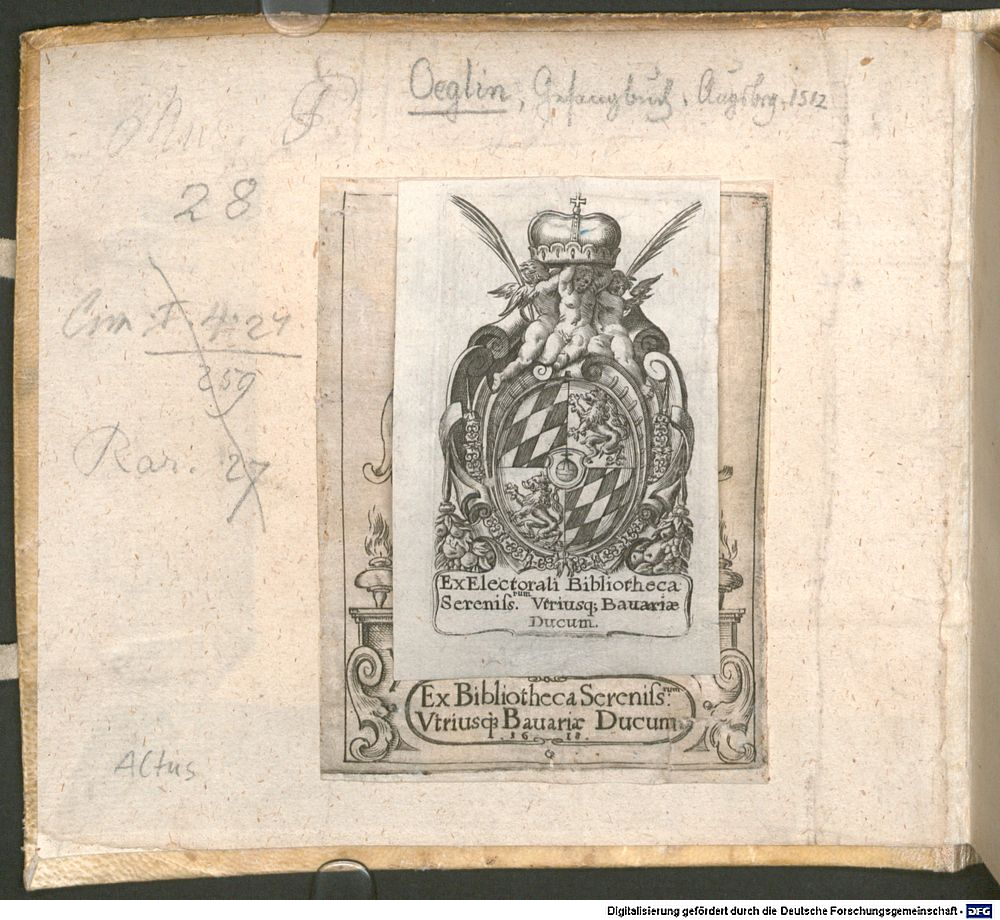 Oeglin, Gesangbuch, Augsbrg, 1512
Mus. P.
28
4° 24
259
Rar. 27
Ex Electorali Bibliotheca
Sereniſs.rum Vtriusq; Bauariæ
Ducum.
Ex Bibliotheca Sereniſs.rum
Vtriusq; Bauariæ Ducum
.1618.
Actus
Digitalisierung gefördert durch die Deutsche Forschungsgemeinschaft - DFG